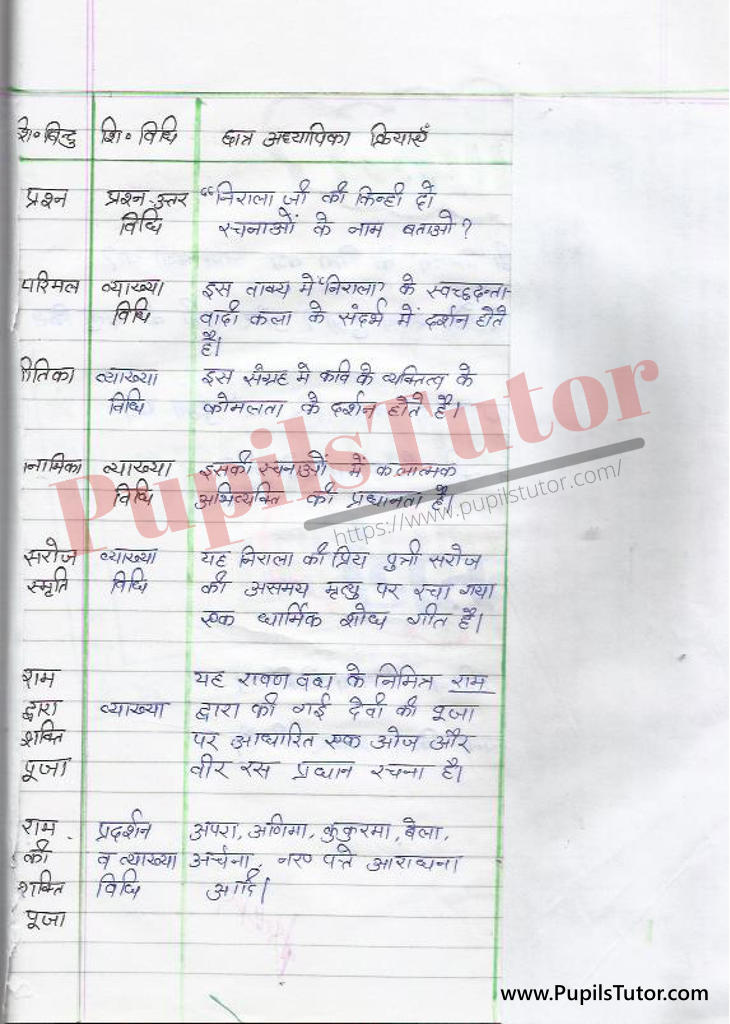 शि॰ बिन्दु शि॰ विधि छात्र अध्यापिका क्रियाएँ
प्रश्न प्रश्न-उत्तर "निराला जी की किन्ही दो
विधि रचनाओं के नाम बताओ?
परिमल व्याख्या इस वाक्य में "निराला" के स्वच्छदन्ता-
विधि वादी कला के संदर्भ में दर्शन होते
है।
गीतिका व्याख्या इस संग्रह मे कवि के व्यक्तित्व के
विधि कोमलता के दर्शन होते है।
नामिका व्याख्या इसकी रचनाओं में कलात्मक
विधि अभिव्यक्ति की प्रधानता है।
PupilsTutor
https://www.pupilstutor.com/
सरोज व्याख्या यह निराला की प्रिय पुत्री सरोज
स्मृति विधि की असमय मृत्यु पर रचा गया
एक धार्मिक शोध गीत है।
राम यह रावण वध के निमित्र राम
द्वारा व्याख्या द्वारा की गई देवी की पूजा
शक्ति पर आधारित एक ओज और
पूजा वीर रस प्रधान रचना है।
राम प्रदर्शन अपरा, अणिमा, कुकुरमा, बेला,
की व व्याख्या अर्चना, नए पत्ते आराधना
शक्ति विधि आदि।
पूजा
www.PupilsTutor.com